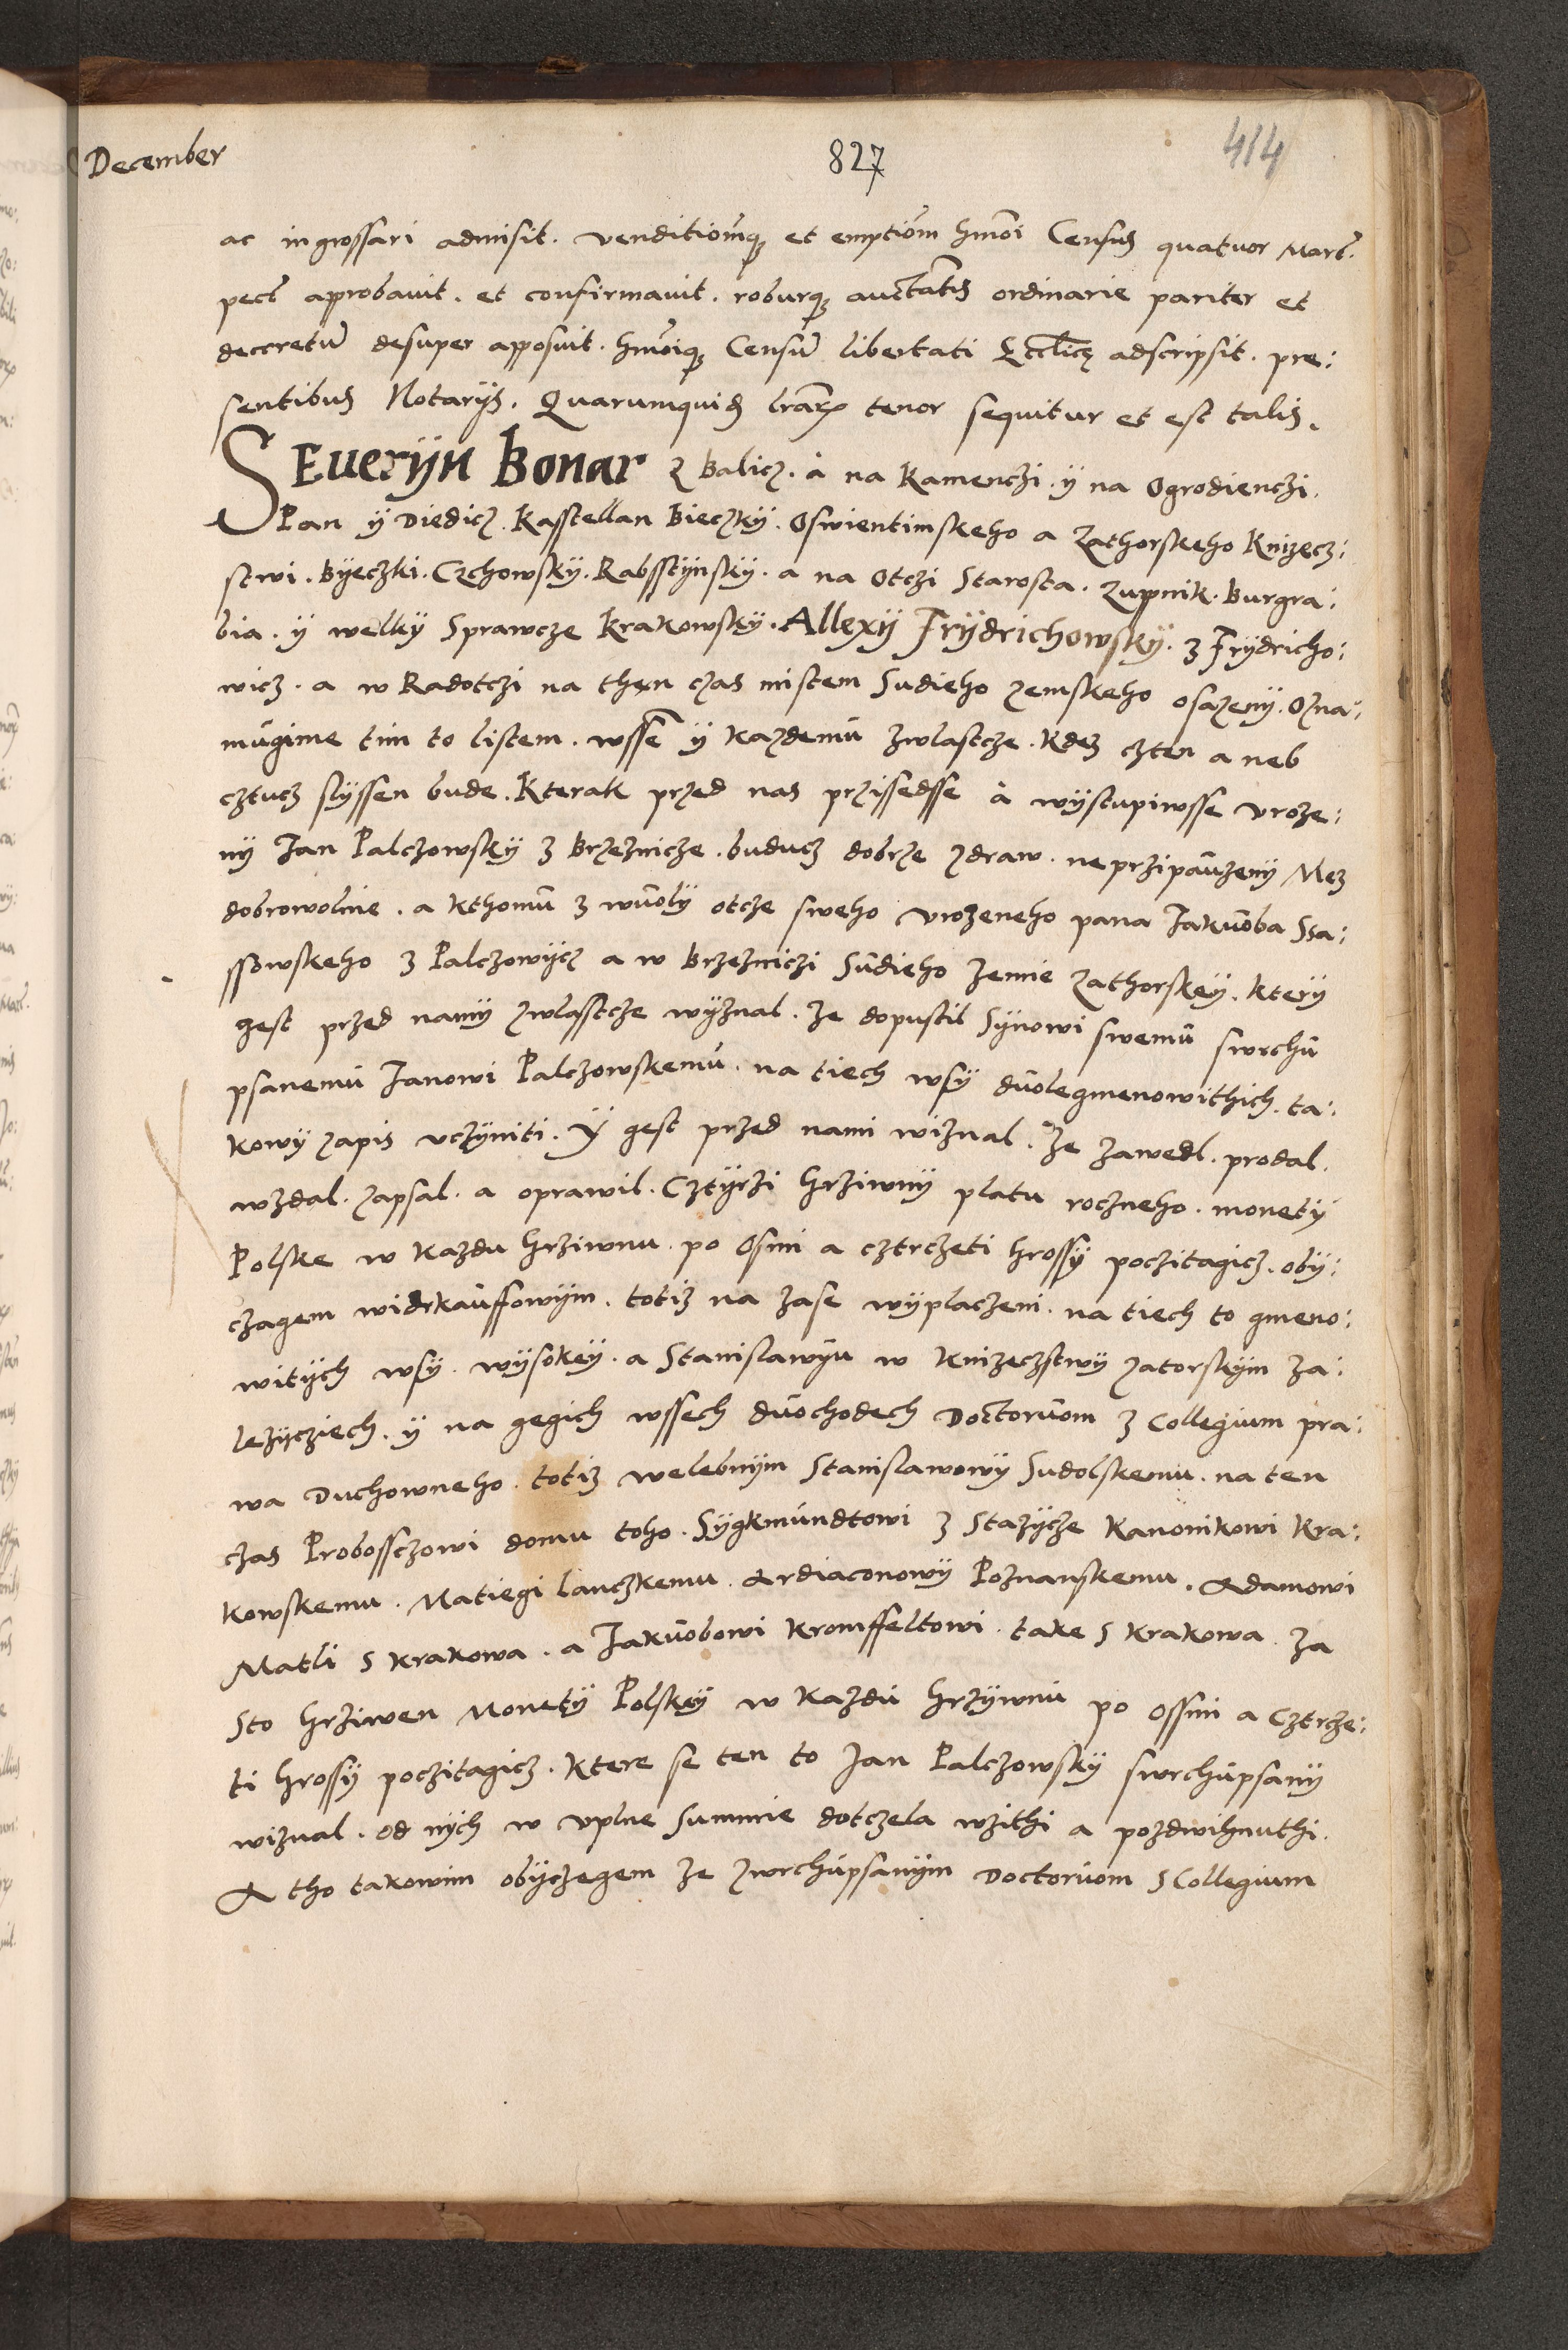 December
827
414
ac ingrossari admisit. venditioneq̃ et emptiõm hmõi Census quatuor Marc̃.
pect̃ approbauit. et confirmauit. roburq̃ auctatis ordinarie pariter et
decretũ desuper apposuit. hmõiq̃ Censũ libertati Ecclic̃ę adscripsit. pre:
sentibus Notarijs. Quarumquid̃ lrãrũ tenor sequitur et est talis.
SEueryn Bonar z Balicz. à na Kamenczi. ÿ na Ogrodienczi.
Pan ÿ Diedicz. Kasstellan Bieczkÿ. Oswientimskeho a Zathorskeho Knizecz:
stwi. Bÿeczki. Czchowskÿ. Rabsstÿnskÿ. a na Otczi Starosta. Zupnik. Burgra:
bia. ÿ welkÿ Sprawcze Krakowskÿ. Allexÿ Frÿdrichowskÿ. z Frÿdricho:
wicz. a w Radotczi na then czas mistem Sudieho zemskeho osazenÿ. Ozna:
mũgime tim to listem. wssẽ ÿ kazdemũ zwlastcze. Kdez czten a neb
cztucz slÿssen bude. Kterak przed nas przissedsse à wÿstupiwsse vroze:
nÿ Jan Palczowskÿ z Brzeznicze. buducz dobrze zdraw. neprzipaũzenÿ Mez
dobrowolnie. a kthomũ z wũolÿ otcze sweho vrozeneho pana Jakũoba Ssa:
ssowskeho z Palczowÿcz a w Brzezniczi Sũdieho zemie Zathorskeÿ. kterÿ
gest przed namÿ zwlasstcze wÿznal. Ze dopustil Sÿnowi swemũ swrchũ
psanemũ Janowi Palczowskemũ. na tiech wsÿ dũolegmenowithich. ta:
kowÿ zapis vczÿniti. Ÿ gest przed nami wiznal. Ze zawedl. prodal.
wzdal. zapsal. a oprawil. Cztÿrzi hrziwnÿ platu roczneho. monetÿ
Polske w kazdu hrziwnu. po Osmi a cztrczeti hrossÿ poczitagicz. obÿ:
czagem widrkaũffowÿm. totiz na zase wÿplaczeni. na tiech to gmeno:
witÿch wsÿ. wÿsokeÿ. a Stanislawÿu w Knizeczstwÿ zatorskÿm za:
lezÿcziech. ÿ na gegich wssech dũochodech Doctorũom z Collegium pra:
wa Duchowneho. totiz welebnÿm Stanislawowÿ Sudolskemu. na ten
czas Probossczowi domu toho. Sÿgkmũndtowi z Stazÿcze Kanonikowi Kra:
kowskemu. Matiegi lanczkemu. Ardiaconowÿ Poznanskemu. Adamowi
Matli s krakowa. a Jakũobowi Kromffeltowi. take s krakowa. Za
Sto hrziwen Monetÿ Polskeÿ w kazdũ hrzÿwnũ po Ossmi a Cztrcze:
ti hrossÿ poczitagicz. Ktere se ten to Jan Palczowskÿ swrchũpsanÿ
wiznal. od nÿch w vplne Summie dotczela wzithi a pozdwihnuthi.
A tho takowim obÿczegem ze zwrchũpsanÿm Doctorũom s Collegium